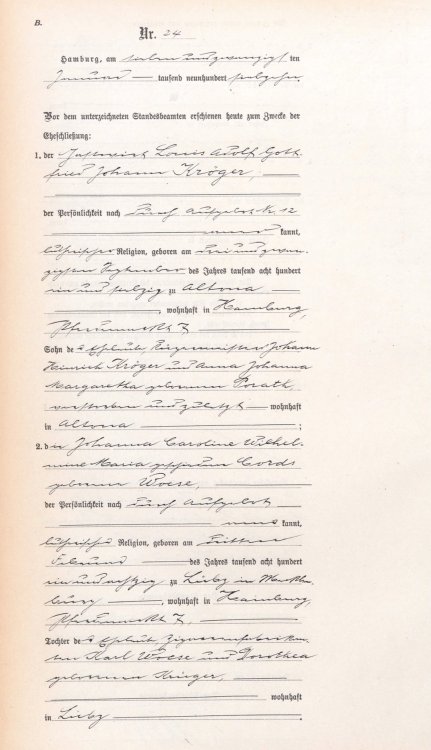 B.
Nr. 24
Hamburg, am sieben und zwanzigsten
Januar tausend neunhundert sechzehn
Vor dem unterzeichneten Standesbeamten erschienen heute zum Zwecke der
Eheschließung:
1. der Gastwirt Louis Adolf Gott-
fried Johann Kröger,
der Persönlichkeit nach durch Aufgebot Nr. 12
kannt,
lutherischer Religion, geboren am drei und zwan-
zigsten September des Jahres tausend acht hundert
ein und sechzig zu Altona
, wohnhaft in Hamburg,
Pferdemarkt 7,
Sohn de Eheleute Johann
Heinrich Kröger und Anna Johanna
Margaretha geborenen Porath,
verstorben und zuletzt wohnhaft
in Altona ;
2. die Johanna Caroline Wilhel-
mine Maria geschiedene Cords
geborene Woese,
der Persönlichkeit nach durch Aufgebot
kannt,
lutherischer Religion, geboren am dritten
Februar des Jahres tausend acht hundert
ein und achtzig zu Lübz in Mecklen-
burg, wohnhaft in Hamburg,
Pferdemarkt 7,
Tochter de Eheleute Zigarrenfabrikan-
ten Karl Woese und Dorothea
geborenen Krüger,
wohnhaft
in Lübz .